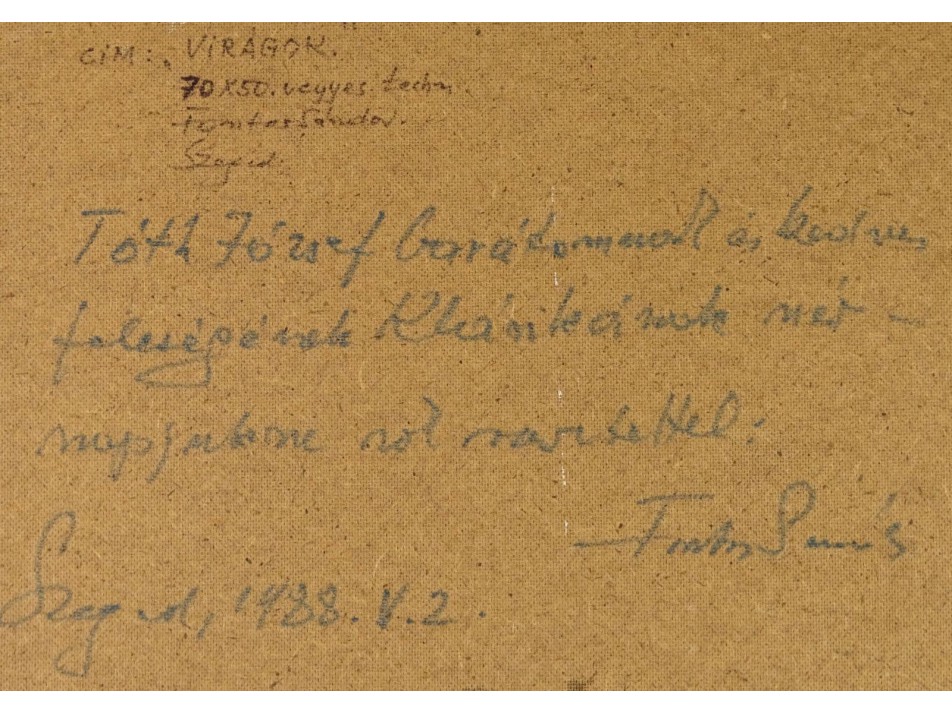 CÍM: VIRÁGOK.
70X50. vegyes techn.
Fontos Sándor.
Szeged.
Tóth József barátomnak és kedves
feleségének Klárikának név-
napjukra
Fontos Sándor
Szeged, 1988. V. 2.